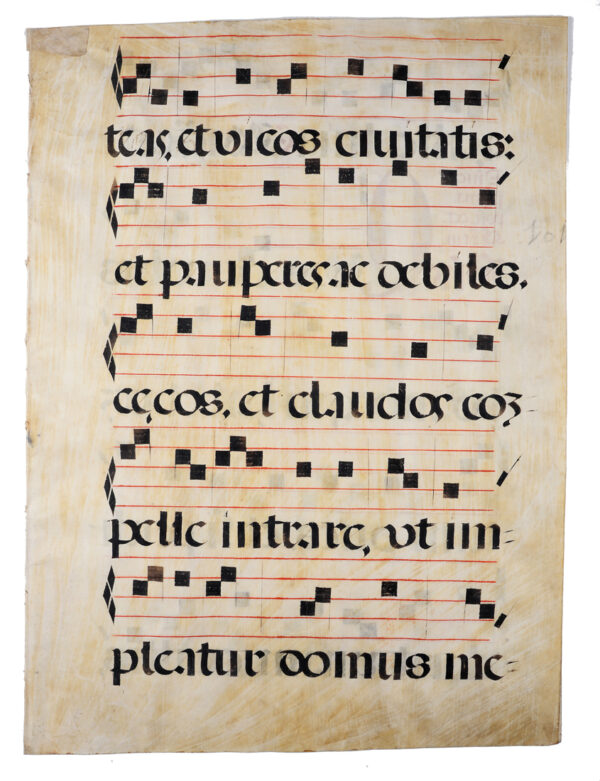 teas, et vicos ciuitatis:
et pauperes ac debiles,
cęcos, et claudos co3=
pelle intrare, vt im=
pleatur domus me=